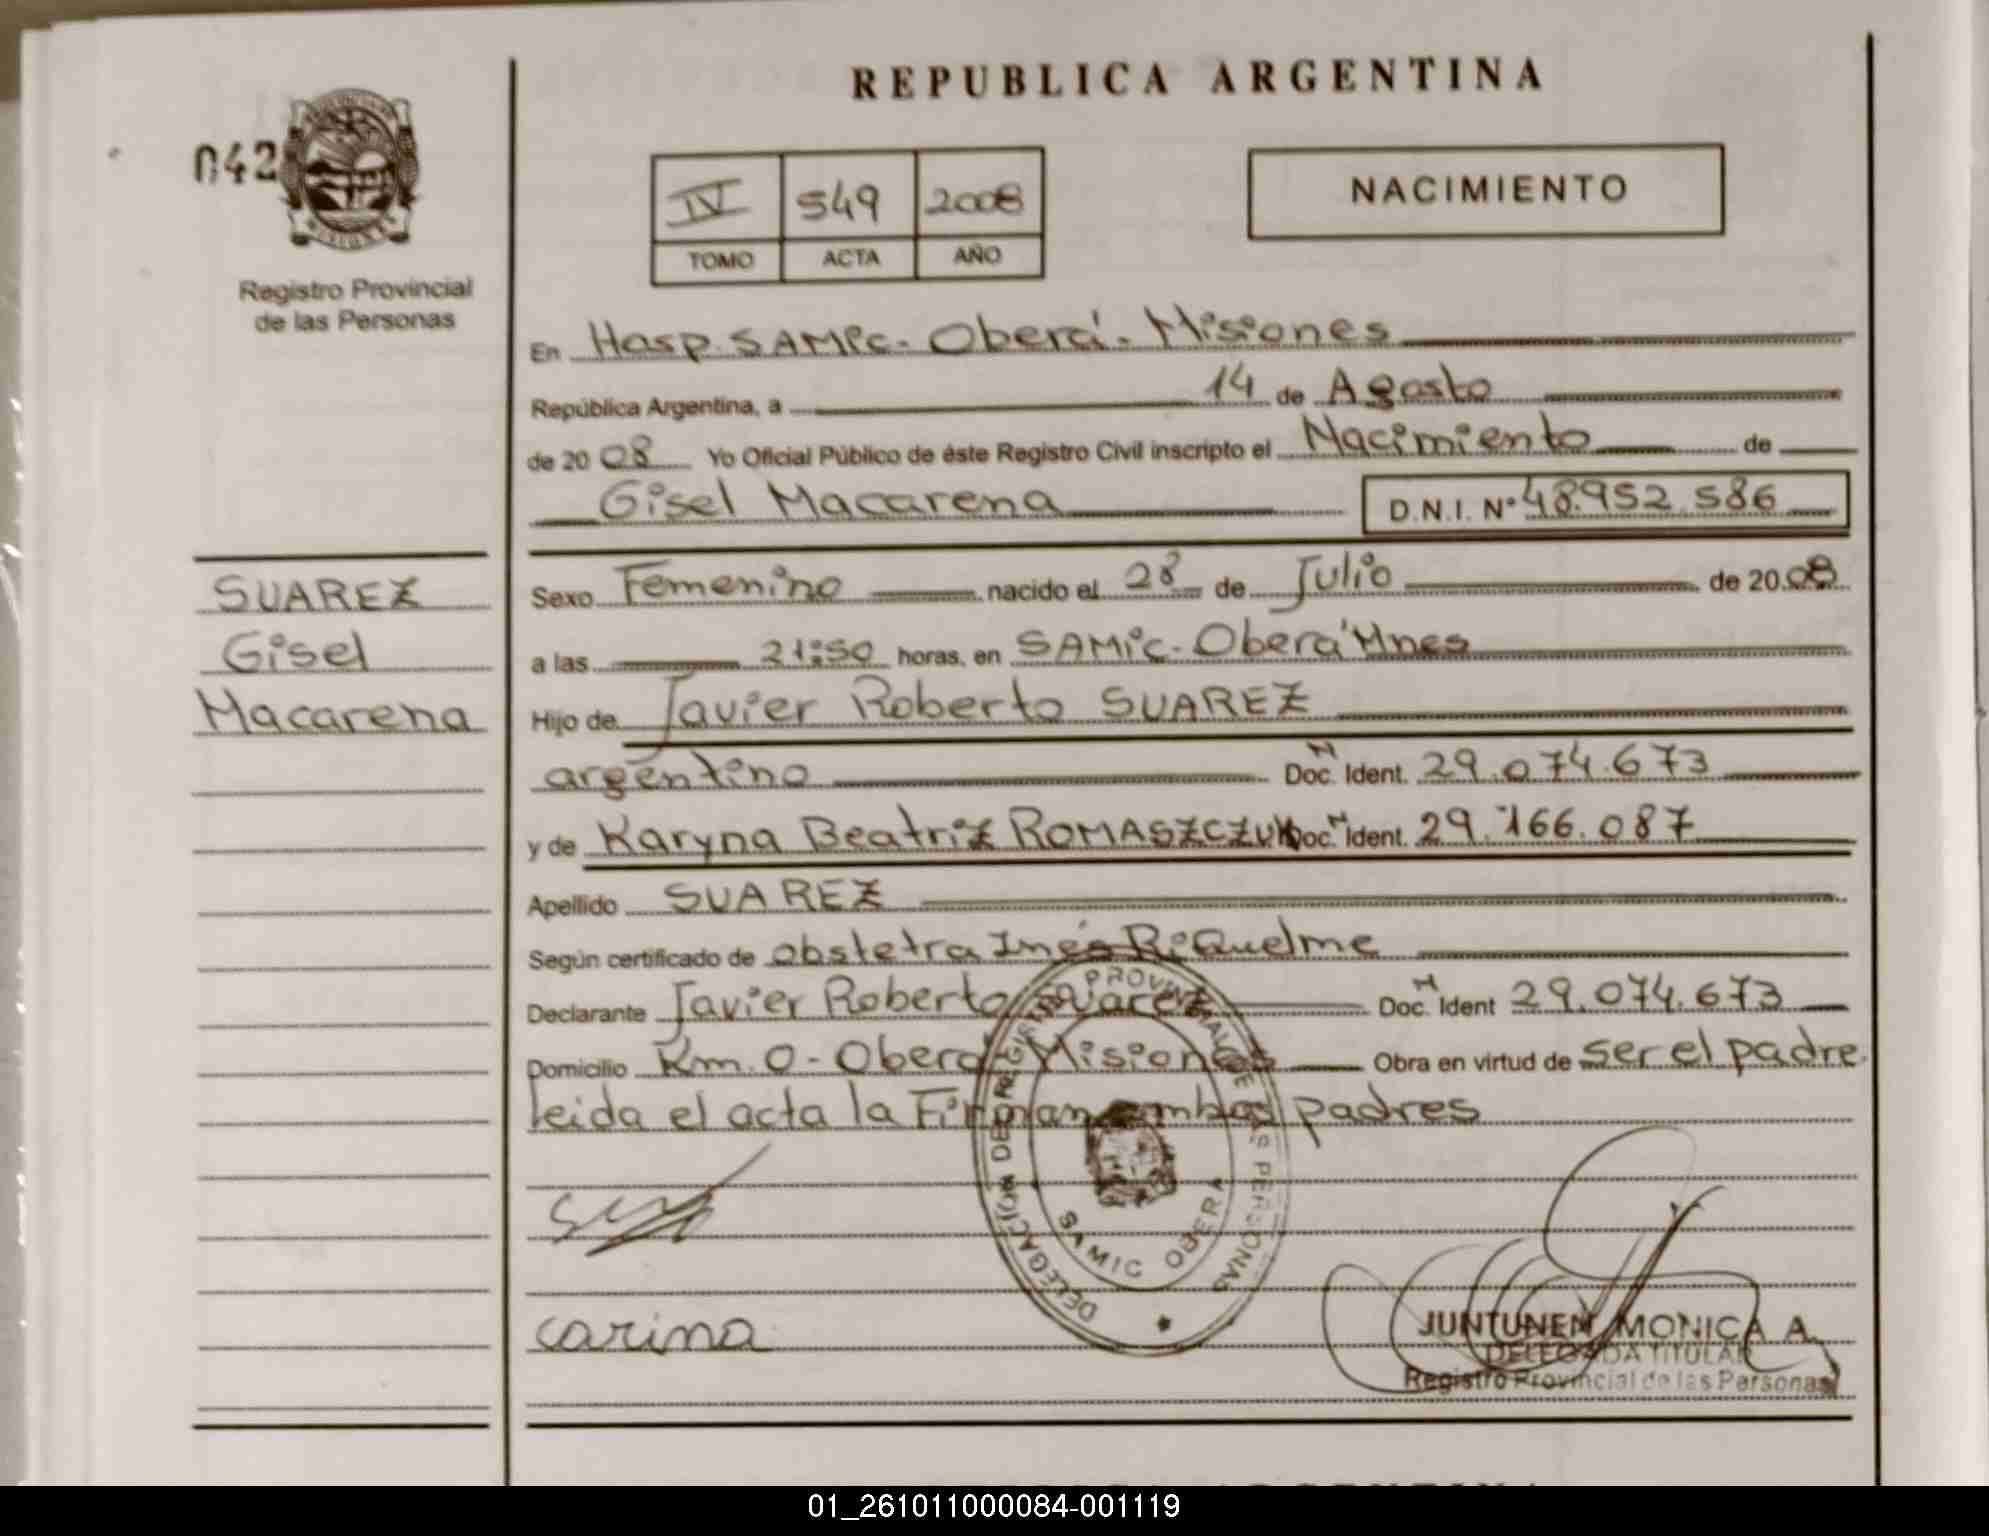 REPUBLICA ARGENTINA
042
IV 549 2008
TOMO ACTA AÑO
NACIMIENTO
MISIONES
Registro Provincial
de las Personas
En Hosp. SAMic. Oberá. Misiones
República Argentina, a 14 de Agosto
de 2008 Yo Oficial Público de éste Registro Civil inscripto el Nacimiento de
Gisel Macarena D.N.I. Nº 48.952.586
SUAREZ
Gisel
Macarena
Sexo Femenino nacido el 28 de Julio de 2008
a las 21:50 horas, en SAMic. Oberá Mnes
Hijo de Javier Roberto SUAREZ
argentino Doc. N Ident. 29.074.673
y de Karyna Beatriz ROMASZCZUK Doc. N Ident. 29.166.087
Apellido SUAREZ
Según certificado de obstetra Inés RiQuelme
Declarante Javier Roberto Suarez Doc. N Ident 29.074.673
Domicilio Km. 0 - Oberá Misiones Obra en virtud de ser el padre
leida el acta la Firman ambos padres
DELEGACION DEL REGISTRO PROVINCIAL DE LAS PERSONAS
SAMIC OBERA
carina
JUNTUNEN MONICA A.
DELEGADA TITULAR
Registro Provincial de las Personas
01_261011000084-001119